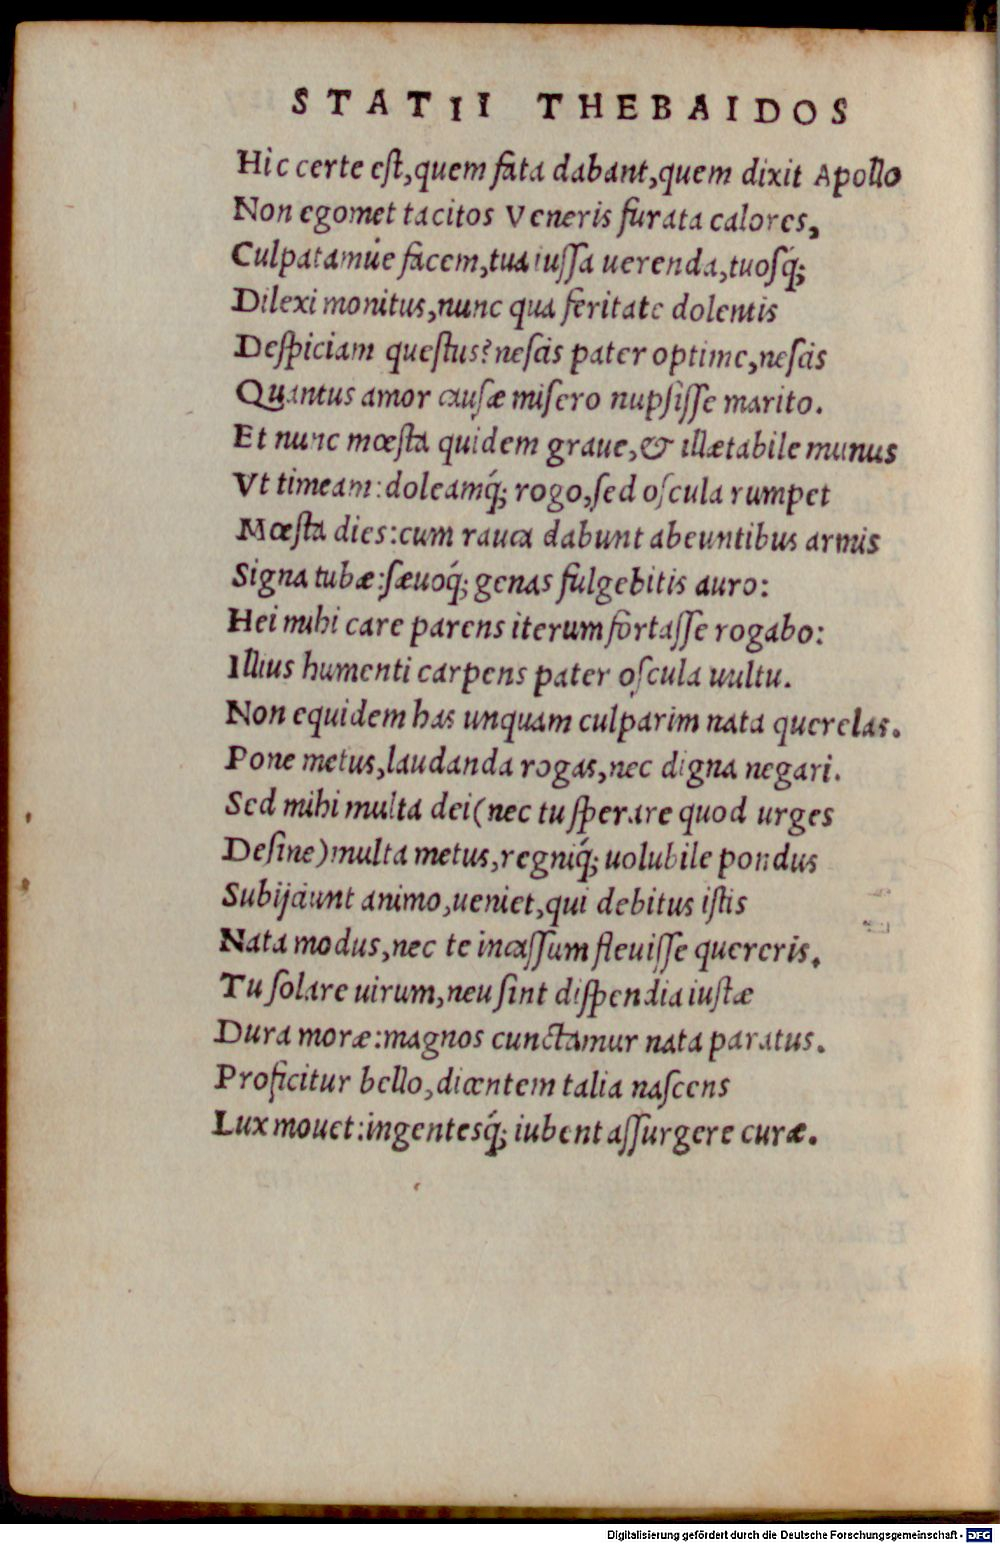 STATII THEBAIDOS
Hic certe est,quem fata dabant,quem dixit Apollo
Non egomet tacitos Veneris furata calores,
Culpatamúe facem,tua iussa uerenda,tuosq́;
Dilexi monitus,nunc qua feritate dolentis
Despiciam questus?nescis pater optime,nescis
Quantus amor causæ misero nupsisse marito.
Et nunc mœsta quidem graue,& illætabile munus
Vt timeam:doleamq́; rogo,sed oscula rumpet
Mœsta dies:cum rauca dabunt abeuntibus armis
Signa tubæ:sæuoq́; genas fulgebitis auro:
Hei mihi care parens iterum fortasse rogabo:
Illius humenti carpens pater oscula uultu.
Non equidem has unquam culparim nata querelas.
Pone metus,laudanda rogas,nec digna negari.
Sed mihi multa dei(nec tu sperare quod urges
Desine)multa metus,regniq́; uolubile pondus
Subijciunt animo,ueniet,qui debitus istis
Nata modus,nec te incassum fleuisse quereris.
Tu solare uirum,neu sint dispendia iustæ
Dura moræ:magnos cunctamur nata paratus.
Proficitur bello,dicentem talia nascens
Lux mouet:ingentesq́; iubent assurgere curæ.
Digitalisierung gefördert durch die Deutsche Forschungsgemeinschaft - DFG